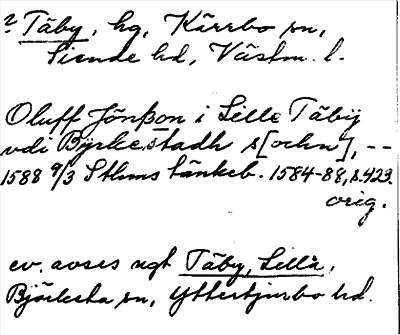 ? Täby, hg, Kärrbo sn,
Siende hd, Västm. l.
Oluff Jönsson i Lille Täbÿ
vdi Bÿrkestadh s[ochn], --
1588 9/3 Sthms tänkeb. 1584-88, s. 423.
orig.
ev. avses ngt Täby, Lilla,
Björksta sn, Yttertjurbo hd.